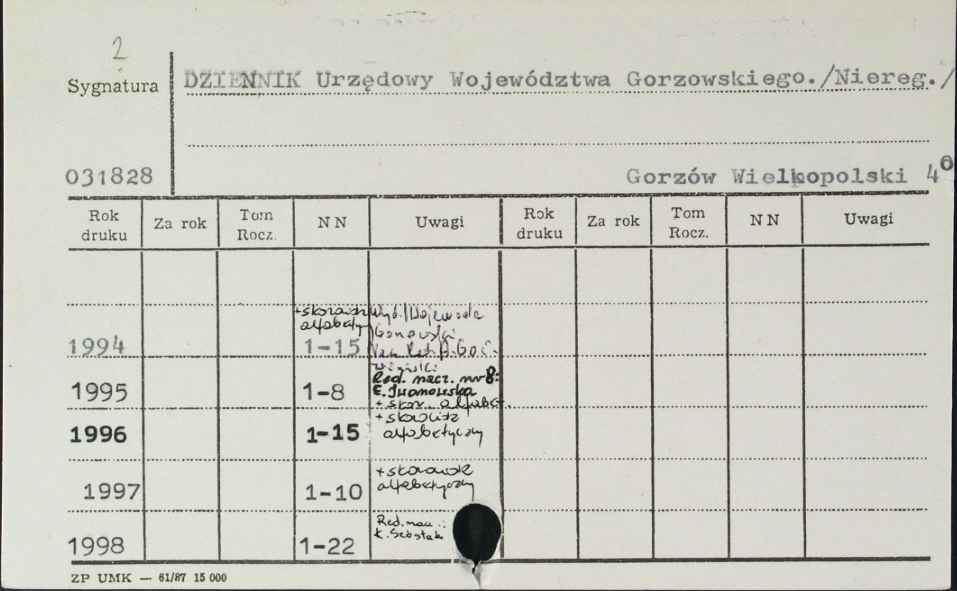 2
Sygnatura DZIENNIK Urzędowy Województwa Gorzowskiego./Niereg./
031828 Gorzów Wielkopolski 4°
Rok druku Za rok Tom Rocz. NN Uwagi Rok druku Za rok Tom Rocz. NN Uwagi
+skorowidz alfabety Wyd. Wojewoda
1994 1-15
Red. nacz. nr 8:
1995 1-8 E. Iwanowska
+ skor. alfabet.
+ skorowidz
1996 1-15 alfabetyczny
+ skorowidz
1997 1-10 alfabetyczny
Red. nacz.:
1998 1-22 K.
ZP UMK — 61/87 15 000